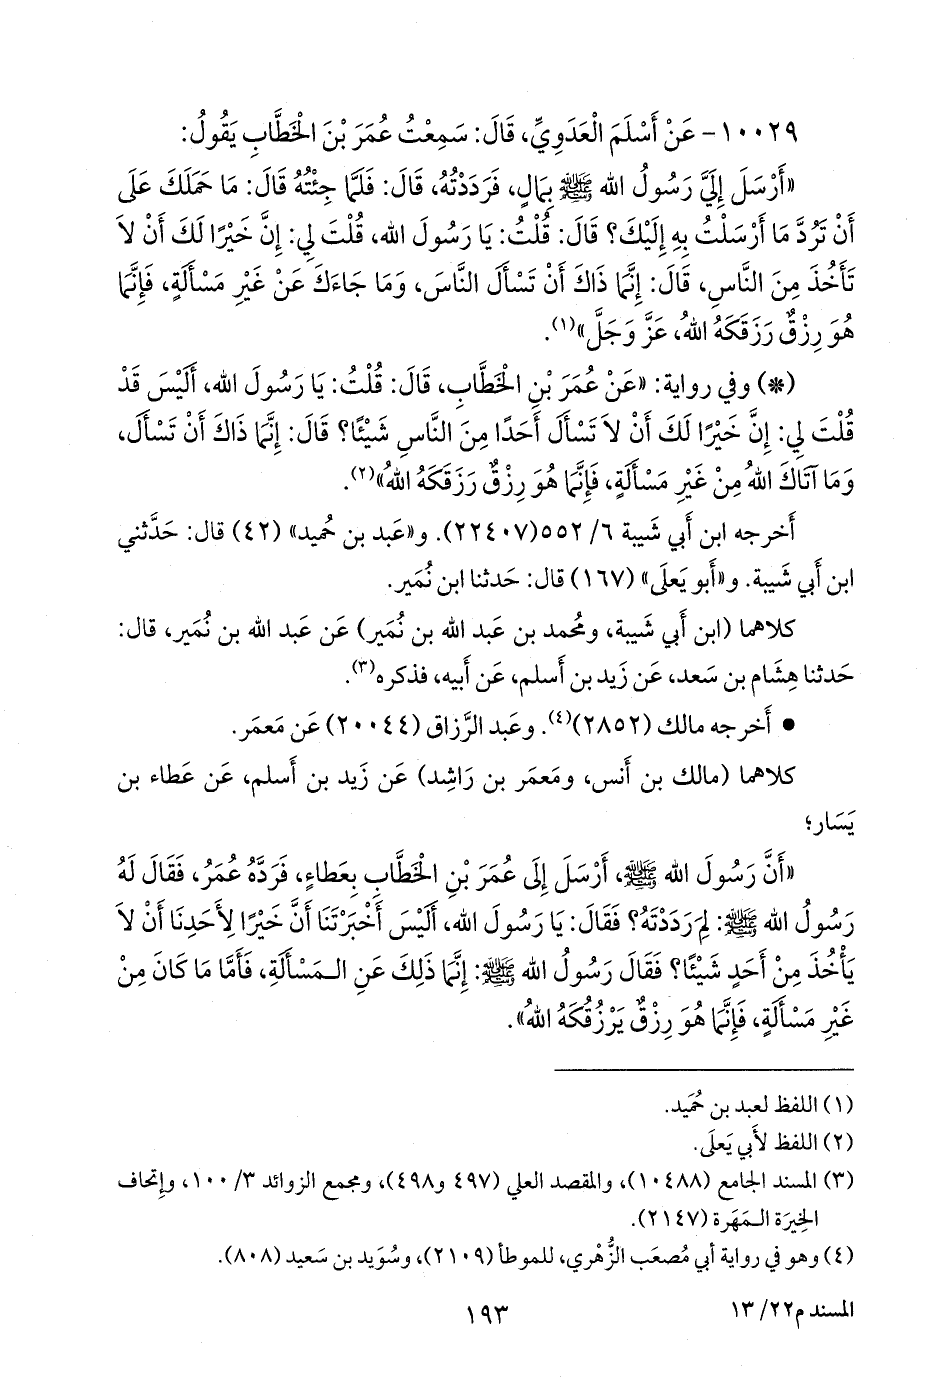 ١٠٠٢٩- عَنْ أَسْلَمَ الْعَدَوِيِّ، قَالَ: سَمِعْتُ عُمَرَ بْنَ الْخَطَّابِ يَقُولُ:
«أَرْسَلَ إِلَيَّ رَسُولُ الله ﷺ بِمَالٍ، فَرَدَدْتُهُ، قَالَ: فَلَمَّا جِئْتُهُ قَالَ: مَا حَمَلَكَ عَلَى
أَنْ تَرُدَّ مَا أَرْسَلْتُ بِهِ إِلَيْكَ؟ قَالَ: قُلْتُ: يَا رَسُولَ الله، قُلْتَ لِي: إِنَّ خَيْرًا لَكَ أَنْ لاَ
تَأْخُذَ مِنَ النَّاسِ، قَالَ: إِنَّمَا ذَاكَ أَنْ تَسْأَلَ النَّاسَ، وَمَا جَاءَكَ عَنْ غَيْرِ مَسْأَلَةٍ، فَإِنَّمَا
هُوَ رِزْقٌ رَزَقَكَهُ اللهُ، عَزَّ وَجَلَّ»(١).
(*) وفي رواية: «عَنْ عُمَرَ بْنِ الْخَطَّابِ، قَالَ: قُلْتُ: يَا رَسُولَ الله، أَلَيْسَ قَدْ
قُلْتَ لِي: إِنَّ خَيْرًا لَكَ أَنْ لاَ تَسْأَلَ أَحَدًا مِنَ النَّاسِ شَيْئًا؟ قَالَ: إِنَّمَا ذَاكَ أَنْ تَسْأَلَ،
وَمَا آتَاكَ اللهُ مِنْ غَيْرِ مَسْأَلَةٍ، فَإِنَّمَا هُوَ رِزْقٌ رَزَقَكَهُ اللهُ»(٢).
أَخرجه ابن أَبي شَيبة ٦/ ٥٥٢(٢٢٤٠٧). و«عَبد بن حُميد» (٤٢) قال: حَدَّثني
ابن أَبي شَيبة. و«أَبو يَعلَى» (١٦٧) قال: حَدثنا ابن نُمَير.
كلاهما (ابن أَبي شَيبة، ومُحمد بن عَبد الله بن نُمَير) عَن عَبد الله بن نُمَير، قال:
حَدثنا هِشَام بن سَعد، عَن زَيد بن أَسلم، عَن أَبيه، فذكره(٣).
● أَخرجه مالك (٢٨٥٢)(٤). وعَبد الرَّزاق (٢٠٠٤٤) عَن مَعمَر.
كلاهما (مالك بن أَنس، ومَعمَر بن رَاشِد) عَن زَيد بن أَسلم، عَن عَطاء بن
يَسَار؛
«أَنَّ رَسُولَ الله ﷺ، أَرْسَلَ إِلَى عُمَرَ بْنِ الْخَطَّابِ بِعَطَاءٍ، فَرَدَّهُ عُمَرُ، فَقَالَ لَهُ
رَسُولُ الله ﷺ: لِمَ رَدَدْتَهُ؟ فَقَالَ: يَا رَسُولَ الله، أَلَيْسَ أَخْبَرْتَنَا أَنَّ خَيْرًا لِأَحَدِنَا أَنْ لاَ
يَأْخُذَ مِنْ أَحَدٍ شَيْئًا؟ فَقَالَ رَسُولُ الله ﷺ: إِنَّمَا ذَلِكَ عَنِ الـمَسْأَلَةِ، فَأَمَّا مَا كَانَ مِنْ
غَيْرِ مَسْأَلَةٍ، فَإِنَّمَا هُوَ رِزْقٌ يَرْزُقُكَهُ اللهُ».
(١) اللفظ لعبد بن حُمَيد.
(٢) اللفظ لأَبي يَعلَى.
(٣) المسند الجامع (١٠٤٨٨)، والمقصد العلي (٤٩٧ و٤٩٨)، ومجمع الزوائد ٣/ ١٠٠، وإتحاف
الخِيرَة الـمَهَرة (٢١٤٧).
(٤) وهو في رواية أبي مُصعَب الزُّهْري، للموطأ (٢١٠٩)، وسُوَيد بن سَعيد (٨٠٨).
المسند م٢٢/ ١٣
١٩٣